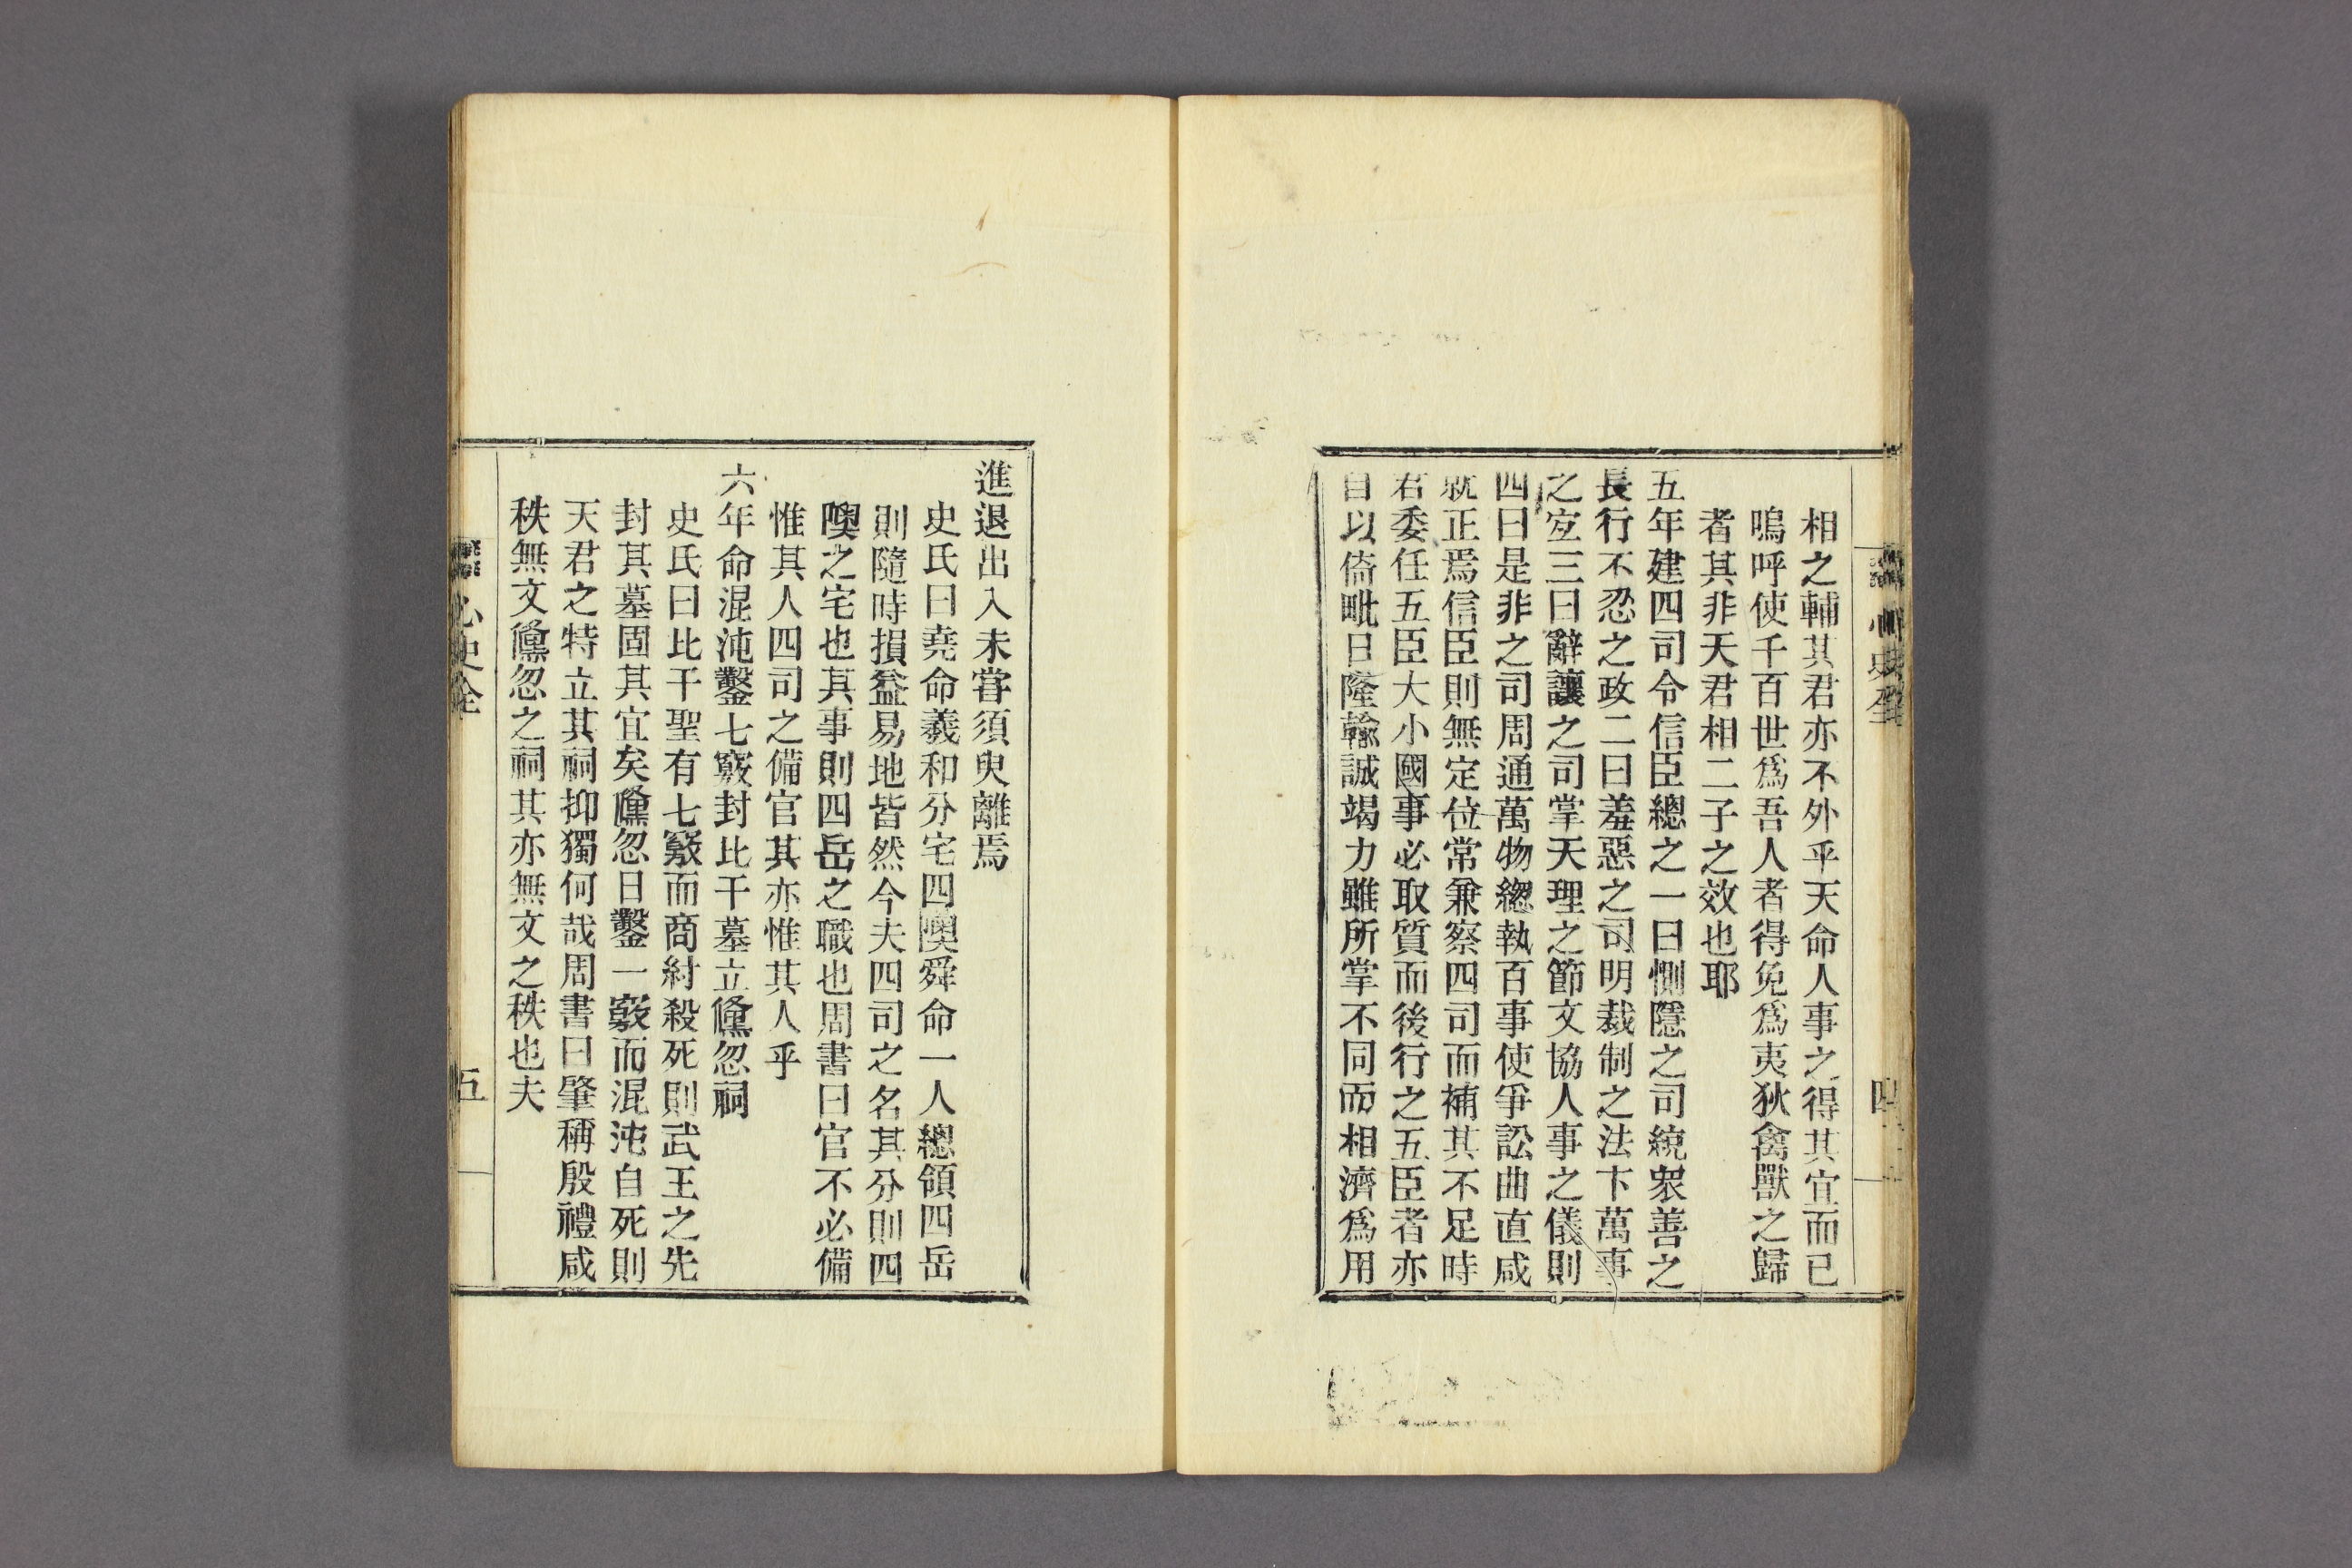 相之輔其君亦不外乎天命人事之得其宜而已
嗚呼使千百世爲吾人者得免爲夷狄禽獸之歸
者其非天君相二子之效也耶
五年建四司令信臣總之一曰惻隱之司統衆善之
長行不忍之政二曰羞惡之司明裁制之法卞萬事
之宜三曰辭讓之司掌天理之節文協人事之儀則
四曰是非之司周通萬物緫執百事使爭訟曲直咸
就正焉信臣則無定位常兼察四司而補其不足時
君委任五臣大小國事必取質而後行之五臣者亦
自以倚毗日隆輸誠竭力雖所掌不同而相濟爲用
心史全
四
進退出入未嘗須臾離焉
史氏曰堯命羲和分宅四隩舜命一人總領四岳
則隨時損益易地皆然今夫四司之名其分則四
隩之宅也其事則四岳之職也周書曰官不必備
惟其人四司之備官其亦惟其人乎
六年命混沌鑿七竅封比干墓立儵忽祠
史氏曰比干聖有七竅而商紂殺死則武王之先
封其墓固其宜矣儵忽日鑿一竅而混沌自死則
天君之特立其祠抑獨何哉周書曰肇稱殷禮咸
秩無文儵忽之祠其亦無文之秩也夫
心史全
五